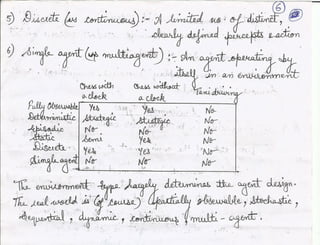 6
5) Discrete (vs continuous) :- A limited no. of distinct,
clearly defined percepts & action
6) Single agent (vs multiagent) :- An agent operating by
itself in an environment
Chess with a clock Chess without a clock Taxi driving
Fully Observable Yes Yes No
Deterministic Strategic Strategic No
Episodic No No No
Static Semi Yes No
Discrete Yes Yes No
Single agent No No No
The environment type largely determines the agent design.
The real world is (of course) partially observable, stochastic,
sequential, dynamic, continuous, multi-agent.